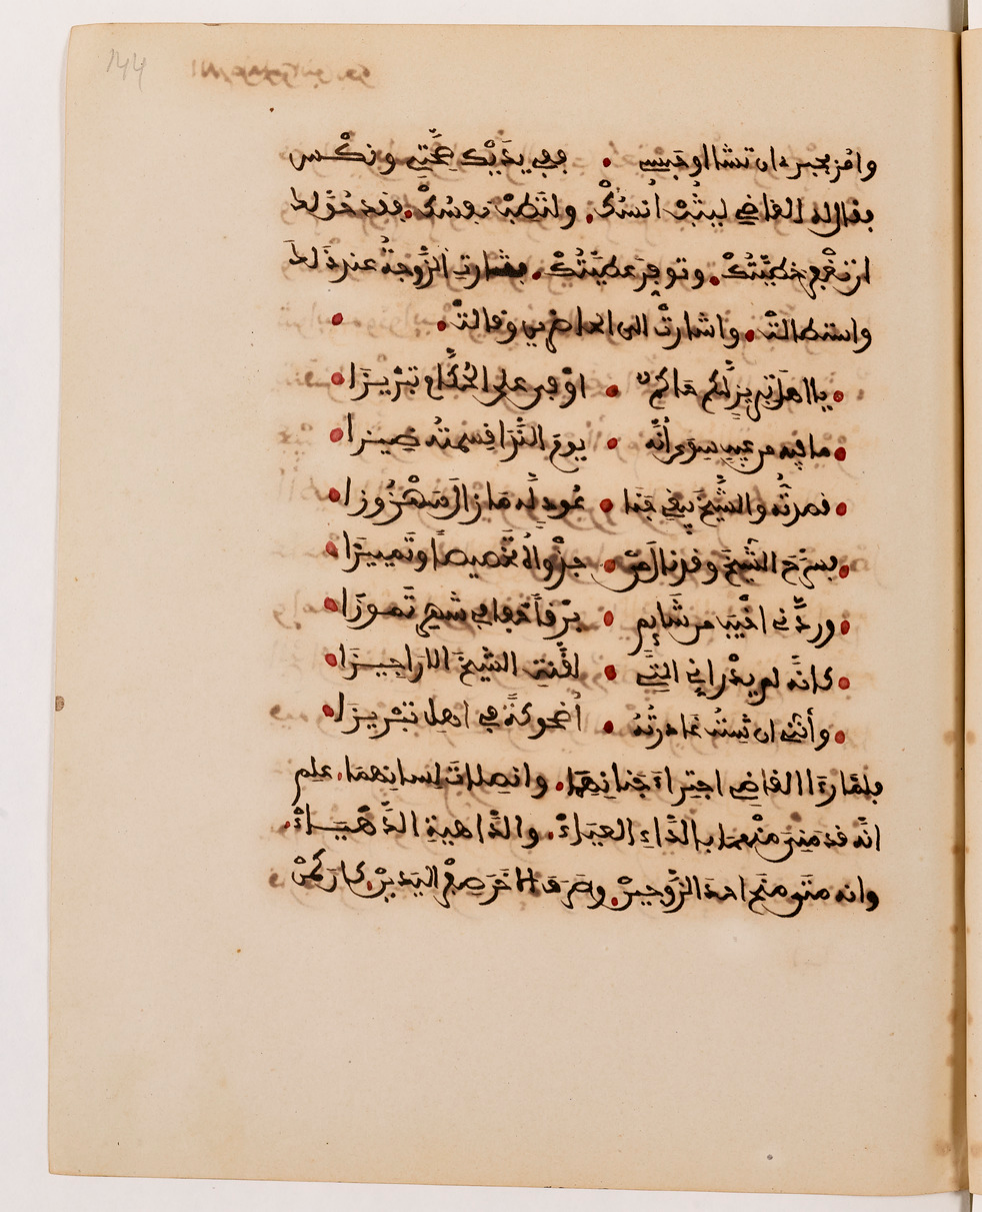 144
وامر بجبر ان تشا او حبس • ففي يديك صحتي ونكس
فقال له القاضي ليثب انسك. ولتطب نفسك. فقد حق لك
ان تغفر خطيتك. وتوفر عطيتك. فثارت الزوجة عند ذلك
واستطالت. واشارت الى الحاضرين وقالت. •
• يا اهل تبريز لكم حاكم • اوفى على الحكام تبريزا •
• ما فيه من عيب سوى أنه • يوم الندا قسمته ضيزا •
• قصدته والشيخ نبغي جنا • عود له ما زال مهزوزا •
• فسرح الشيخ وقد نال من • جدواه تخصيصا وتمييزا •
• وردني اخيب من شايم • برقا خفا في شهر تموزا •
• كانه لم يدر اني التي • لقنت الشيخ الاراجيزا •
• وأنني ان شئت غادرته • أضحوكة في اهل تبريزا •
فلما رءا القاضي اجتراء جنانهما. وانصلات لسانهما. علم
انه قد مني منهما بالداء العياء. والداهية الدهياء.
وانه متى منح احد الزوجين. وصرف الاخر صفر اليدين. كان كمن